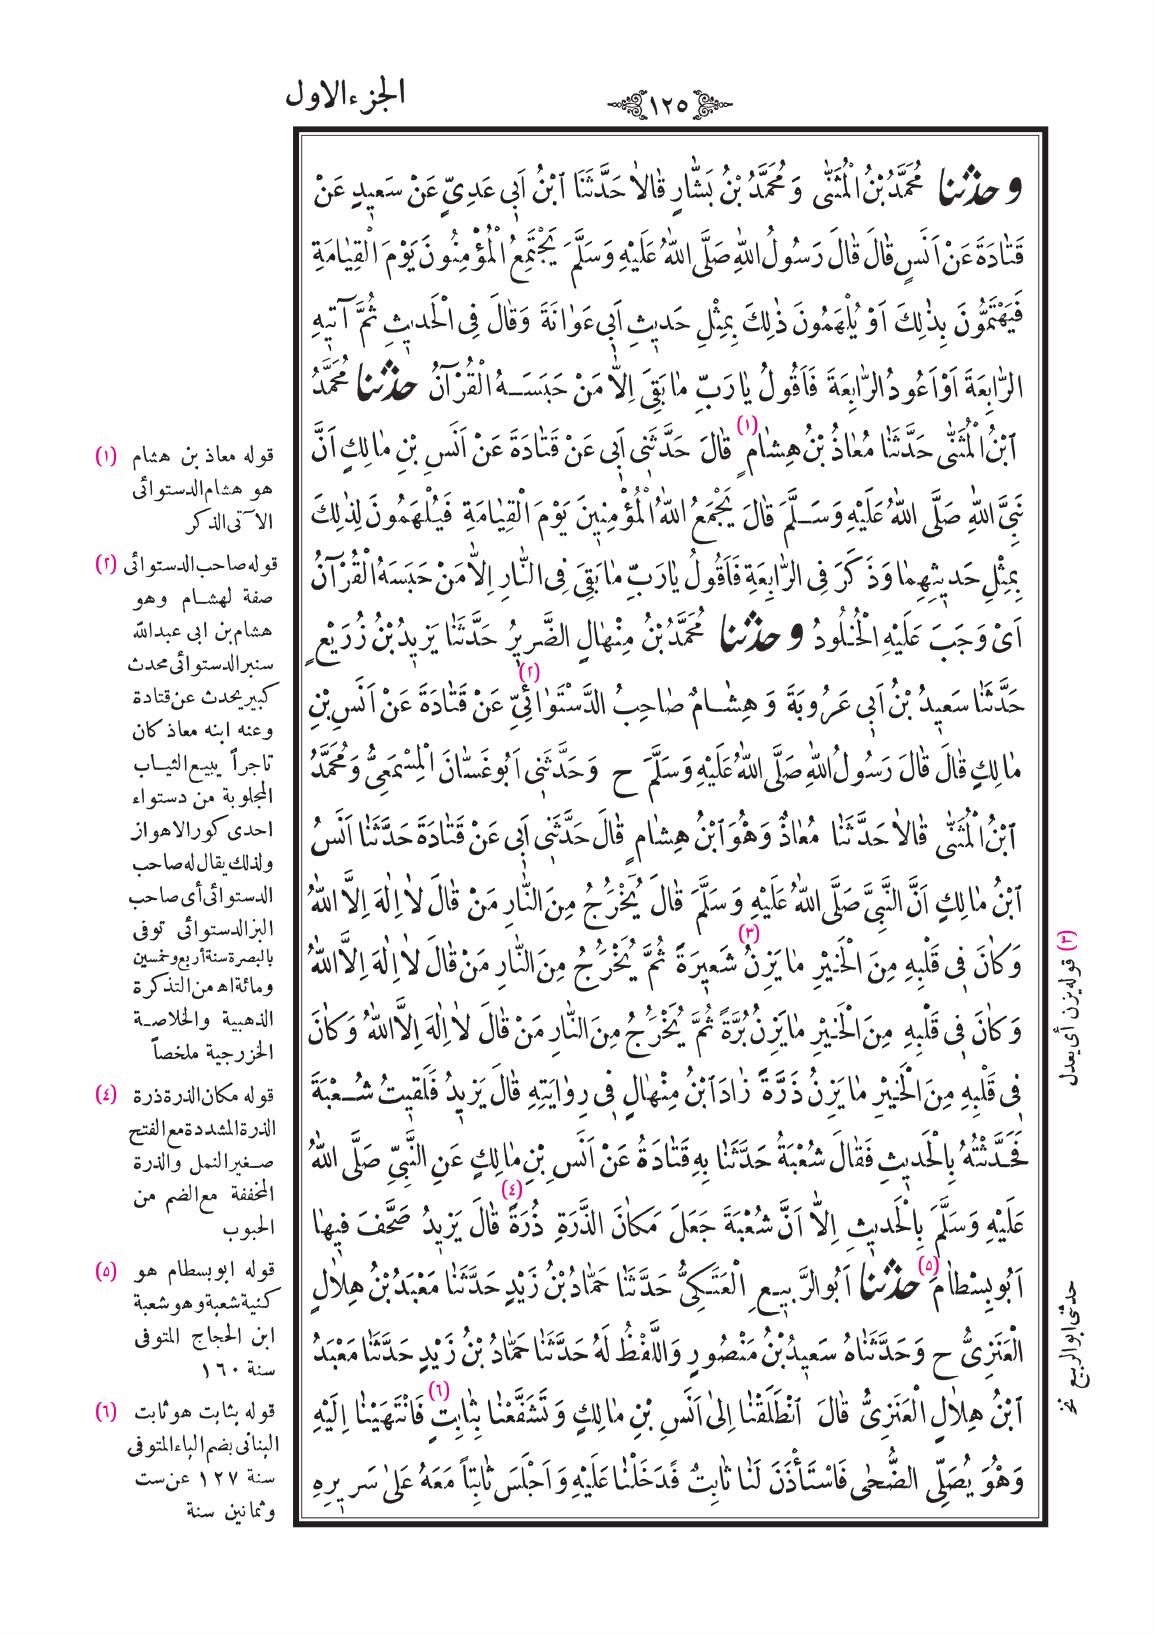 الجزء الاول
١٢٥
و حدثنا مُحَمَّدُ بْنُ الْمُثَنّٰى وَ مُحَمَّدُ بْنُ بَشّٰارٍ قٰالاٰ حَدَّثَنَا ابْنُ اَبٖى عَدِىٍّ عَنْ سَعيٖدٍ عَنْ
قَتٰادَةَ عَنْ اَنَسٍ قٰالَ قٰالَ رَسُولُ اللّٰهِ صَلَّى اللّٰهُ عَلَيْهِ وَسَلَّمَ يَجْتَمِعُ الْمُؤْمِنُونَ يَوْمَ الْقِيٰامَةِ
فَيَهْتَمُّونَ بِذٰلِكَ اَوْ يُلْهَمُونَ ذٰلِكَ بِمِثْلِ حَديٖثِ اَبٖى عَوٰانَةَ وَقٰالَ فِى الْحَديٖثِ ثُمَّ آتيٖهِ
الرّٰابِعَةَ اَوْ اَعُودُ الرّٰابِعَةَ فَاَقُولُ يٰا رَبِّ مٰا بَقِىَ اِلاّٰ مَنْ حَبَسَهُ الْقُرْآنُ حدثنا مُحَمَّدُ
ابْنُ الْمُثَنّٰى حَدَّثَنٰا مُعٰاذُ بْنُ هِشٰامٍ (١) قٰالَ حَدَّثَنٖى اَبٖى عَنْ قَتٰادَةَ عَنْ اَنَسِ بْنِ مٰالِكٍ اَنَّ
نَبِىَّ اللّٰهِ صَلَّى اللّٰهُ عَلَيْهِ وَسَلَّمَ قٰالَ يَجْمَعُ اللّٰهُ الْمُؤْمِنيٖنَ يَوْمَ الْقِيٰامَةِ فَيُلْهَمُونَ لِذٰلِكَ
بِمِثْلِ حَديٖثِهِمٰا وَذَكَرَ فِى الرّٰابِعَةِ فَاَقُولُ يٰا رَبِّ مٰا بَقِىَ فِى النّٰارِ اِلاّٰ مَنْ حَبَسَهُ الْقُرْآنُ
اَىْ وَجَبَ عَلَيْهِ الْخُلُودُ و حدثنا مُحَمَّدُ بْنُ مِنْهٰالٍ الضَّريٖرُ حَدَّثَنٰا يَزيٖدُ بْنُ زُرَيْعٍ
حَدَّثَنٰا سَعيٖدُ بْنُ اَبٖى عَرُوبَةَ وَ هِشٰامٌ صٰاحِبُ الدَّسْتَوٰائِىِّ (٢) عَنْ قَتٰادَةَ عَنْ اَنَسِ بْنِ
مٰالِكٍ قٰالَ قٰالَ رَسُولُ اللّٰهِ صَلَّى اللّٰهُ عَلَيْهِ وَسَلَّمَ ح وَحَدَّثَنٖى اَبُو غَسّٰانَ الْمِسْمَعِىُّ وَمُحَمَّدُ
ابْنُ الْمُثَنّٰى قٰالاٰ حَدَّثَنٰا مُعٰاذٌ وَهْوَ ابْنُ هِشٰامٍ قٰالَ حَدَّثَنٖى اَبٖى عَنْ قَتٰادَةَ حَدَّثَنٰا اَنَسُ
ابْنُ مٰالِكٍ اَنَّ النَّبِىَّ صَلَّى اللّٰهُ عَلَيْهِ وَسَلَّمَ قٰالَ يُخْرَجُ مِنَ النّٰارِ مَنْ قٰالَ لاٰ اِلٰهَ اِلاَّ اللّٰهُ
وَكٰانَ فٖى قَلْبِهِ مِنَ الْخَيْرِ مٰا يَزِنُ (٣) شَعيٖرَةً ثُمَّ يُخْرَجُ مِنَ النّٰارِ مَنْ قٰالَ لاٰ اِلٰهَ اِلاَّ اللّٰهُ
وَكٰانَ فٖى قَلْبِهِ مِنَ الْخَيْرِ مٰا يَزِنُ بُرَّةً ثُمَّ يُخْرَجُ مِنَ النّٰارِ مَنْ قٰالَ لاٰ اِلٰهَ اِلاَّ اللّٰهُ وَكٰانَ
فٖى قَلْبِهِ مِنَ الْخَيْرِ مٰا يَزِنُ ذَرَّةً زٰادَ ابْنُ مِنْهٰالٍ فٖى رِوٰايَتِهِ قٰالَ يَزيٖدُ فَلَقيٖتُ شُعْبَةَ
فَحَدَّثْتُهُ بِالْحَديٖثِ فَقٰالَ شُعْبَةُ حَدَّثَنٰا بِهِ قَتٰادَةُ عَنْ اَنَسِ بْنِ مٰالِكٍ عَنِ النَّبِىِّ صَلَّى اللّٰهُ
عَلَيْهِ وَسَلَّمَ بِالْحَديٖثِ اِلاّٰ اَنَّ شُعْبَةَ جَعَلَ مَكٰانَ الذَّرَّةِ ذُرَةً (٤) قٰالَ يَزيٖدُ صَحَّفَ فيٖهٰا
اَبُو بِسْطٰامَ (٥) حدثنا اَبُو الرَّبيٖعِ الْعَتَكِىُّ حَدَّثَنٰا حَمّٰادُ بْنُ زَيْدٍ حَدَّثَنٰا مَعْبَدُ بْنُ هِلاٰلٍ
الْعَنَزِىُّ ح وَحَدَّثَنٰاهُ سَعيٖدُ بْنُ مَنْصُورٍ وَاللَّفْظُ لَهُ حَدَّثَنٰا حَمّٰادُ بْنُ زَيْدٍ حَدَّثَنٰا مَعْبَدُ
ابْنُ هِلاٰلٍ الْعَنَزِىُّ قٰالَ انْطَلَقْنٰا اِلىٰ اَنَسِ بْنِ مٰالِكٍ وَتَشَفَّعْنٰا بِثٰابِتٍ (٦) فَانْتَهَيْنٰا اِلَيْهِ
وَهُوَ يُصَلِّى الضُّحٰى فَاسْتَأْذَنَ لَنٰا ثٰابِتٌ فَدَخَلْنٰا عَلَيْهِ وَ اَجْلَسَ ثٰابِتاً مَعَهُ عَلىٰ سَريٖرِهِ
(١) قوله معاذ بن هشام
هو هشام الدستوائى
الآتى الذكر
(٢) قوله صاحب الدستوائى
صفة لهشام وهو
هشام بن ابى عبدالله
سنبر الدستوائى محدث
كبير يحدث عن قتادة
وعنه ابنه معاذ كان
تاجراً يبيع الثياب
المجلوبة من دستواء
احدى كور الاهواز
ولذلك يقال له صاحب
الدستوائى أى صاحب
البز الدستوائى توفى
بالبصرة سنة أربع وخمسين
ومائة اه من التذكرة
الذهبية والخلاصة
الخزرجية ملخصاً
(٤) قوله مكان الذرة ذرة
الذرة المشددة مع الفتح
صغير النمل والذرة
المخففة مع الضم من
الحبوب
(٥) قوله ابو بسطام هو
كنية شعبة وهو شعبة
ابن الحجاج المتوفى
سنة ١٦٠
(٦) قوله بثابت هو ثابت
البنانى بضم الباء المتوفى
سنة ١٢٧ عن ست
وثمانين سنة
(٣) قوله يزن أى يعدل
حدثنى ابو الربيع نخ